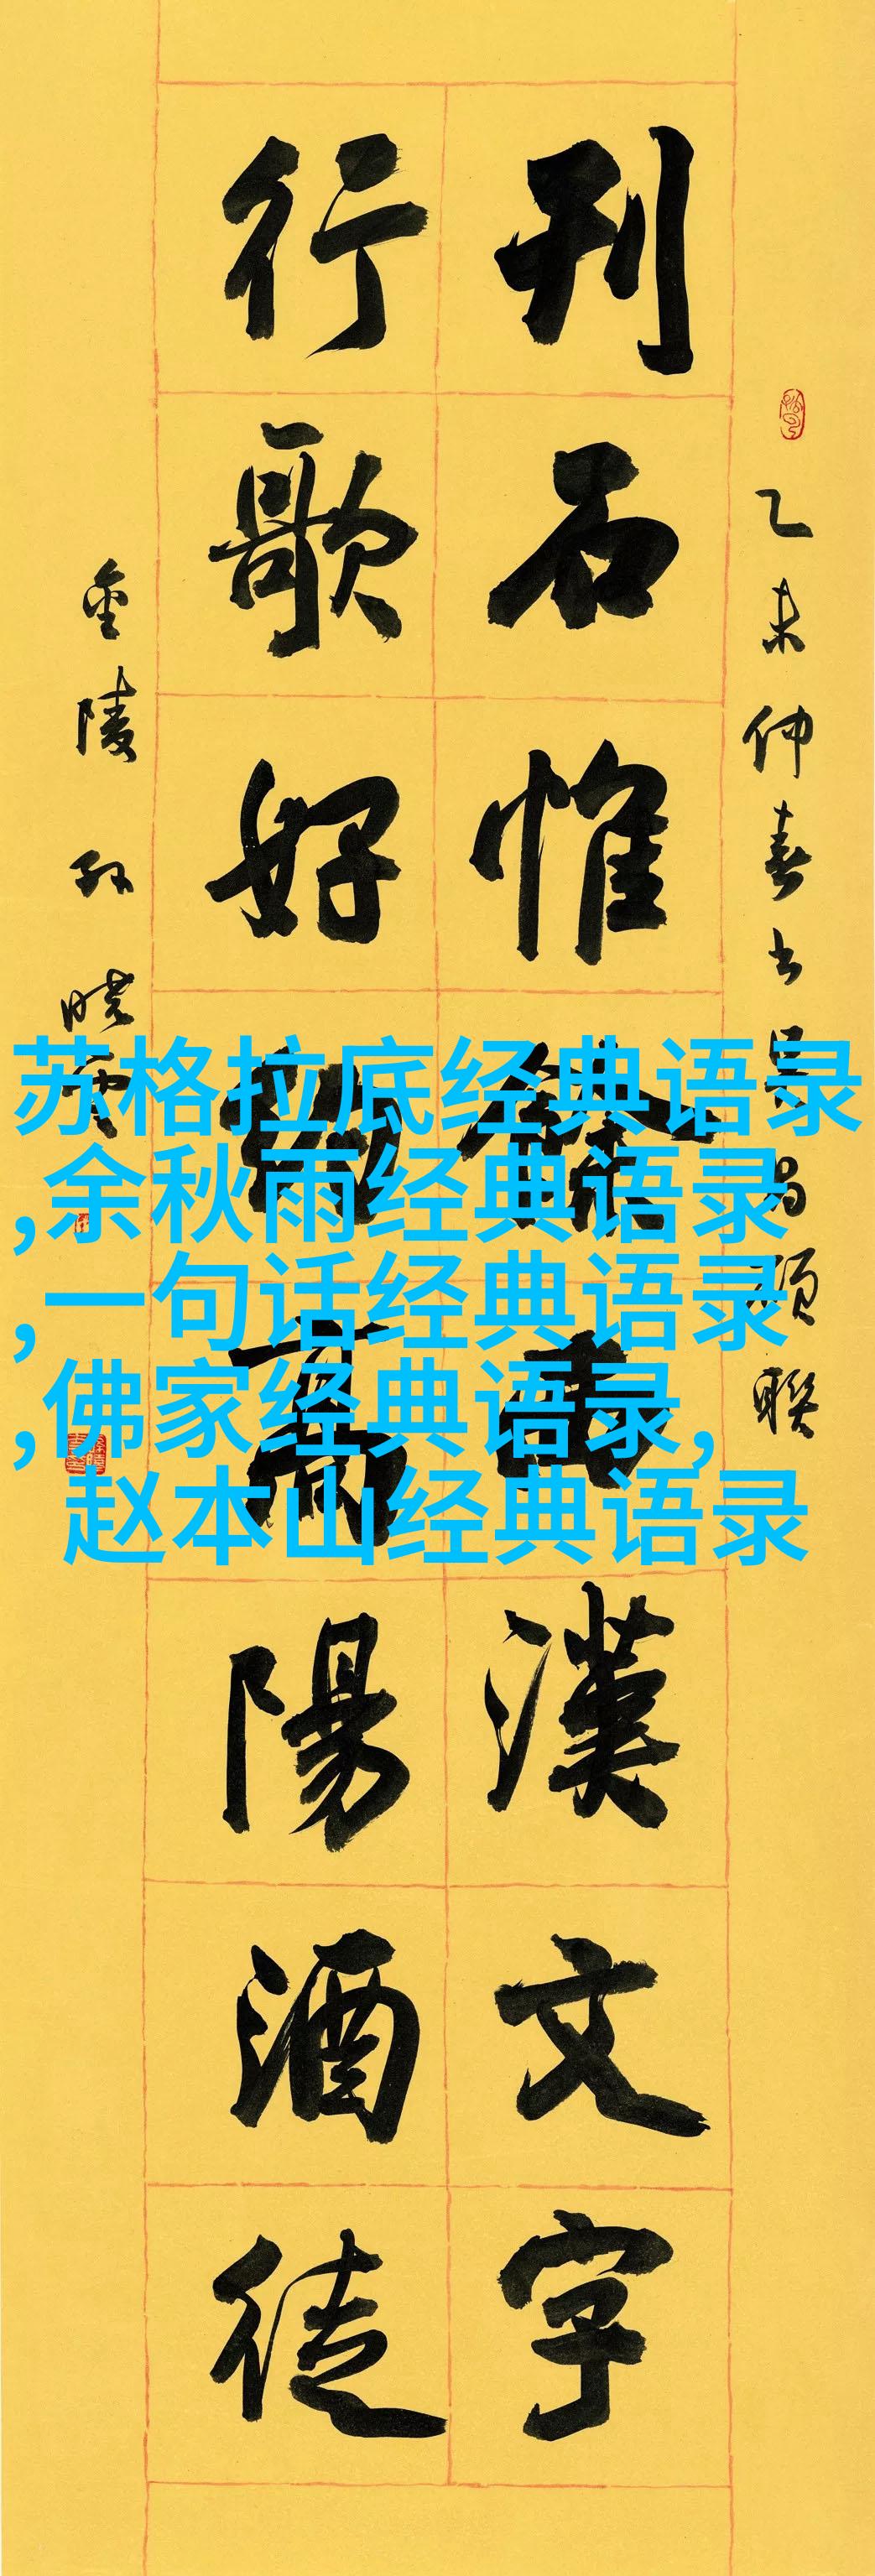 乙未仲春书吴昌硕联
刊石惟
漢文字
行歌好
高陽酒徒
金陵孙晓雲
苏格拉底经典语录
,余秋雨经典语录
,一句话经典语录
,佛家经典语录,
赵本山经典语录